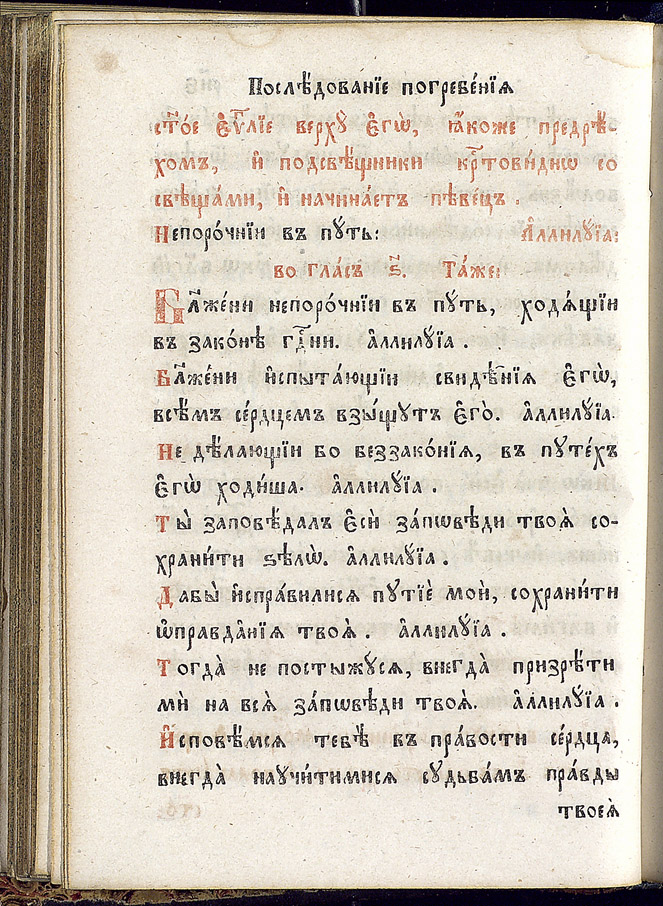 Послѣ́дованїе погребе́нїѧ
ст҃о́е є҆ѵⷢ҇лїе верхꙋ̀ є҆гѡ̀, ꙗ҆́коже предрѣ-
хомъ, и҆ подсвѣщники крⷭ҇тови́днѡ со
свѣща́ми, и҆ начина́етъ пѣве́цъ .
Непоро́чнїи въ пꙋ́ть: А҆ллилꙋ́їа:
во гла́съ ѕ҃. Та́же:
Бл҃же́ни непоро́чнїи въ пꙋ́ть, ходѧ́щїи
въ зако́нѣ гдⷭ҇ни. а҆ллилꙋ́їа .
Бл҃же́ни и҆спыта́ющїи свидѣ́нїѧ є҆гѡ̀,
всѣ́мъ се́рдцемъ взы́щꙋтъ є҆го̀. а҆ллилꙋ́їа.
Не дѣ́лающїи бо беззако́нїѧ, въ пꙋте́хъ
є҆гѡ̀ ходи́ша. а҆ллилꙋ́їа .
Ты̀ заповѣ́далъ є҆сѝ за́пѡвѣди твоѧ̀ со-
храни́ти ѕѣлѡ̀. а҆ллилꙋ́їа .
Дабы̀ и҆спра́вилисѧ пꙋтїѐ моѝ, сохрани́ти
ѡ҆правда́нїѧ твоѧ̀ . а҆ллилꙋ́їа .
Тогда̀ не постыжꙋ́сѧ, внегда̀ призрѣ́ти
мѝ на всѧ̀ за́пѡвѣди твоѧ̀. а҆ллилꙋ́їа .
И҆сповѣ́мсѧ тебѣ̀ въ пра́вости се́рдца,
внегда̀ наꙋчи́тимисѧ сꙋдьба́мъ пра́вды
твоеѧ̀